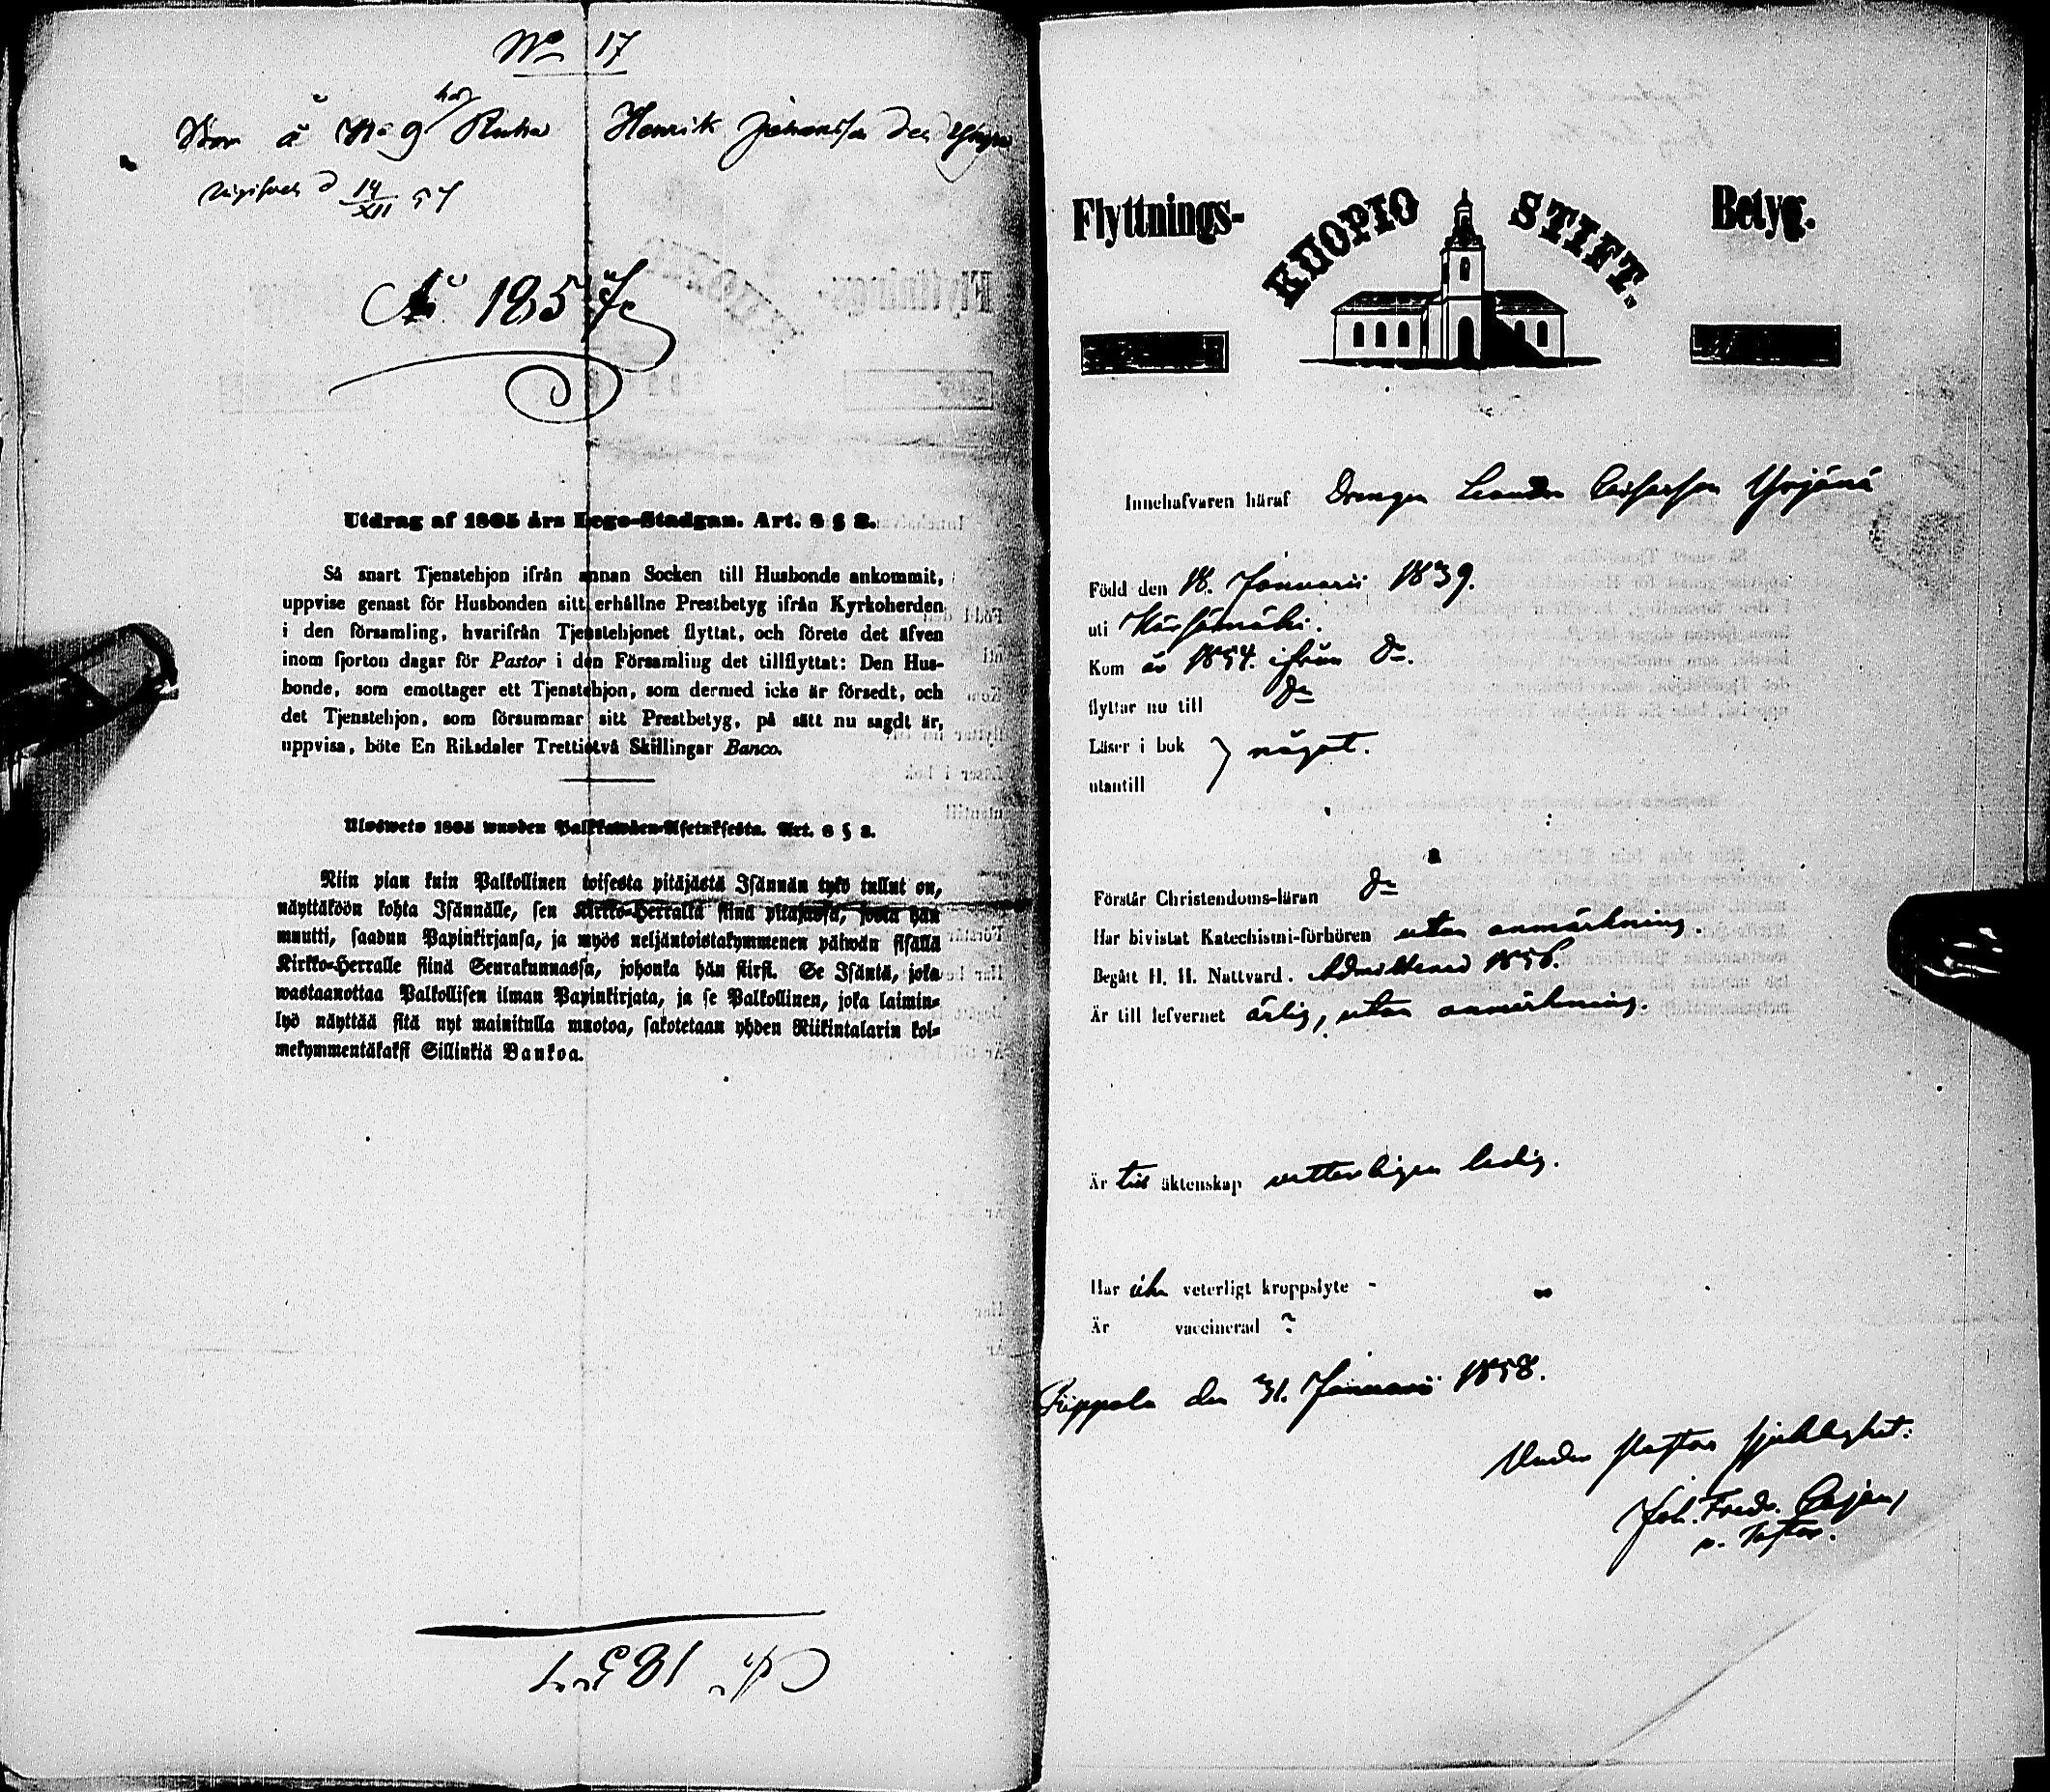 No 17
å No 9 Henrik Johansson den
d 14/XII 57
År 1857
Utdrag af 1805 års Lego-Stadgan. Art. 8 § 2.
Så snart Tjenstehjon ifrån annan Socken till Husbonde ankommit,
uppvise genast för Husbonden sitt erhållne Prestbetyg ifrån Kyrkoherden
i den församling, hvarifrån Tjenstehjonet flyttat, och förete det äfven
inom fjorton dagar för Pastor i den Församling det tillflyttat: Den Hus-
bonde, som emottager ett Tjenstehjon, som dermed icke är försedt, och
det Tjenstehjon, som försummar sitt Prestbetyg, på sätt nu sagdt är,
uppvisa, böte En Riksdaler Trettiotvå Skillingar Banco.
Ulosweto 1805 wuoden Palkkawäen-Asetuksesta. Art. 8 § 2.
Niin pian kuin Palkollinen toisesta pitäjästä Isännän tykö tullut on,
näyttäköön kohta Isännälle, sen Kirkko-Herralta siinä pitäjässä, josta hän
muutti, saadun Papinkirjansa, ja myös neljäntoistakymmenen päiwän sisällä
Kirkko-Herralle siinä Seurakunnassa, johonka hän siirsi. Se Isäntä, joka
wastaanottaa Palkollisen ilman Papinkirjata, ja se Palkollinen, joka laimin-
lyö näyttää sitä nyt mainitulla muotoa, sakotetaan yhden Riikintalarin kol-
mekymmentäkaksi Sillinkiä Bankoa.
Flyttnings- KUOPIO STIFT. Betyg.
Innehafvaren häraf Drengen Leander Yrjänä
Född den 18. Januarii 1839.
uti Kärsämäki.
Kom år 1854. ifrån Do.
flyttar nu till Do
Läser i bok } något.
utantill
Förstår Christendoms-läran Do
Har bivistat Katechismi-förhören utan anmärkning.
Begått H. H. Nattvard. Admitterad 1856.
Är till lefvernet ärlig, utan anmärkning.
Är till äktenskap vetterligen ledig.
Har icke veterligt kroppslyte -
Är vaccinerad ?
Pippola den 31. Januarii 1858.
Under Pastors sjuklighet:
Joh. Fredr.
v. Pastor.